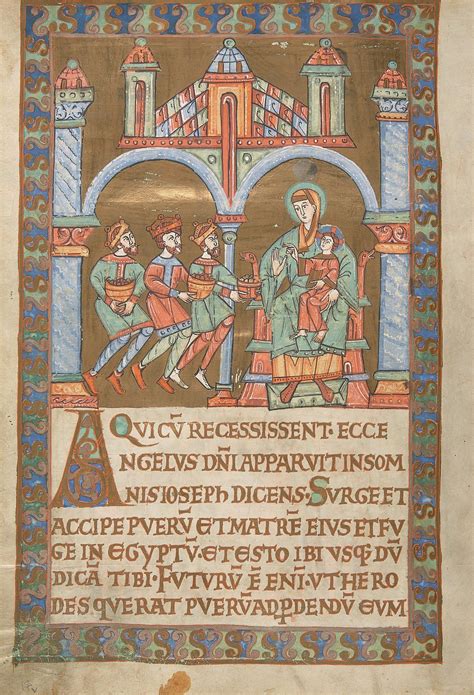 A QVI CŪ RECESSISSENT· ECCE
NGELVS DN̄I APPARVIT IN SOM
NIS IOSEPH DICENS· SVRGE ET
ACCIPE PVERV̄ ET MATRĒ EIVS ET FV
GE IN EGYPTV̄· ET ESTO IBI VSQ; DV̄
DICĀ TIBI· FVTVRV̄ Ē ENĪ· VT HERO
DES QVERAT PVERV̄ AD PDENDV̄ EVM